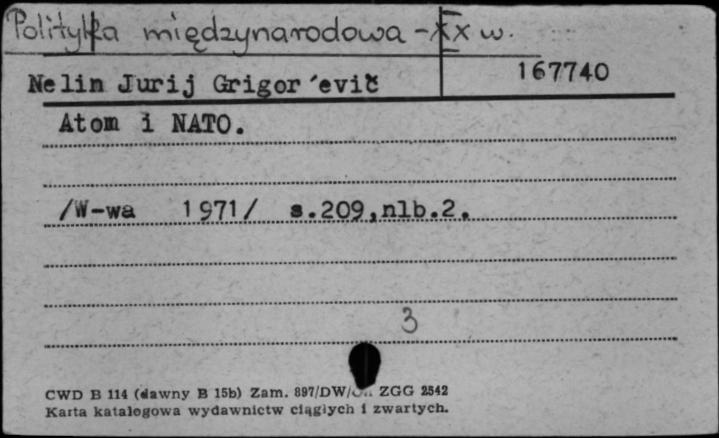 Polityka międzynarodowa - XX w.
Nelin Jurij Grigor´evič 167740
Atom i NATO.
/W-wa 1971/ s.209,nlb.2.
3
CWD B 114 (dawny B 15b) Zam. 897/DW/ ZGG 2542
Karta katalogowa wydawnictw ciągłych i zwartych.